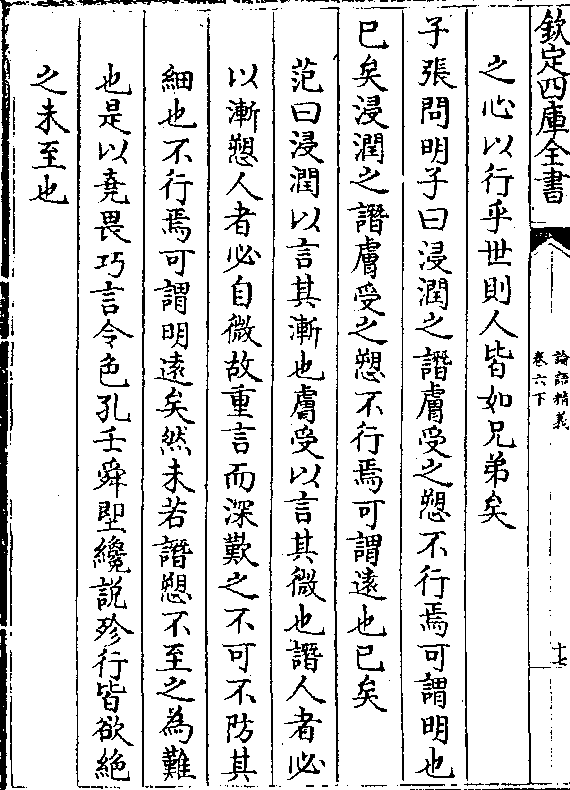 欽定四庫全書
論語精義
卷六下
十七
之心以行乎世則人皆如兄弟矣
子張問明子曰浸潤之譖膚受之愬不行焉可謂明也
已矣浸潤之譖膚受之愬不行焉可謂遠也已矣
范曰浸潤以言其漸也膚受以言其微也譖人者必
以漸愬人者必自微故重言而深歎之不可不防其
細也不行焉可謂明遠矣然未若譖愬不至之為難
也是以堯畏巧言令色孔壬舜堲纔說殄行皆欲絶
之未至也